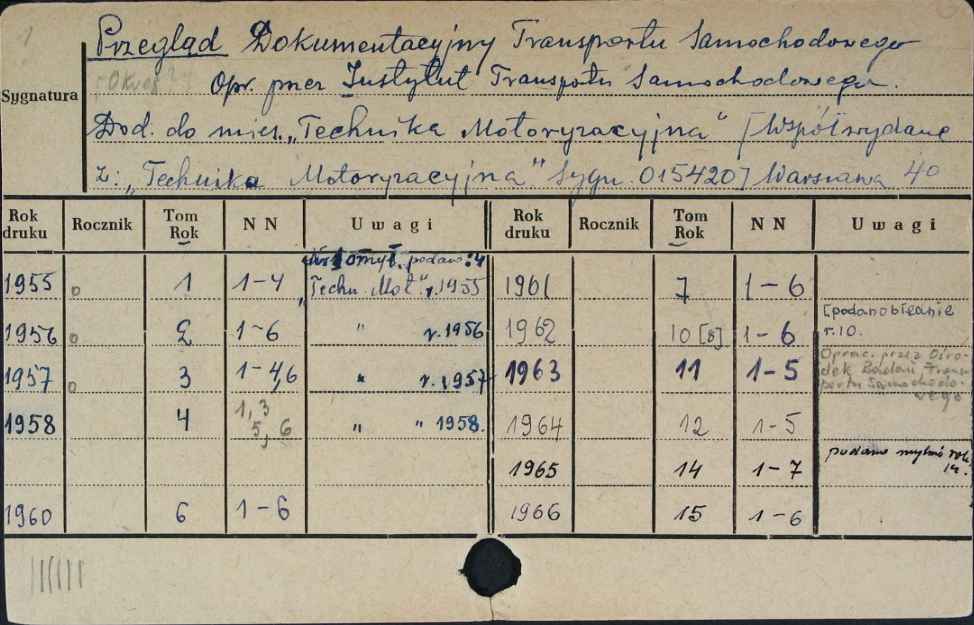 1
Przegląd Dokumentacyjny Transportu Samochodowego
Sygnatura
Opr. przez Instytut Transportu Samochodowego.
Dod. do mies. „Technika Motoryzacyjna" [Współwydane
z: „Technika Motoryzacyjna". Sygn. 015420] Warszawa 40
Rok druku Rocznik Tom Rok NN Uwagi Rok druku Rocznik Tom Rok NN Uwagi
omył. podano: 4
1955 o 1 1-4 „Techn. Mot." r. 1955 1961 7 1-6
1956 o 2 1-6 " r. 1956 1962 10 [8] 1-6 [podano błędnie r. 10.
1957 o 3 1-4,6 " r. 1957 1963 11 1-5 Oprac. przez Ośrodek Badań Transportu Samochodowego
1958 4 1,3 5,6 " " 1958. 1964 12 1-5
1965 14 1-7 podano mylnie rok 14.
1960 6 1-6 1966 15 1-6